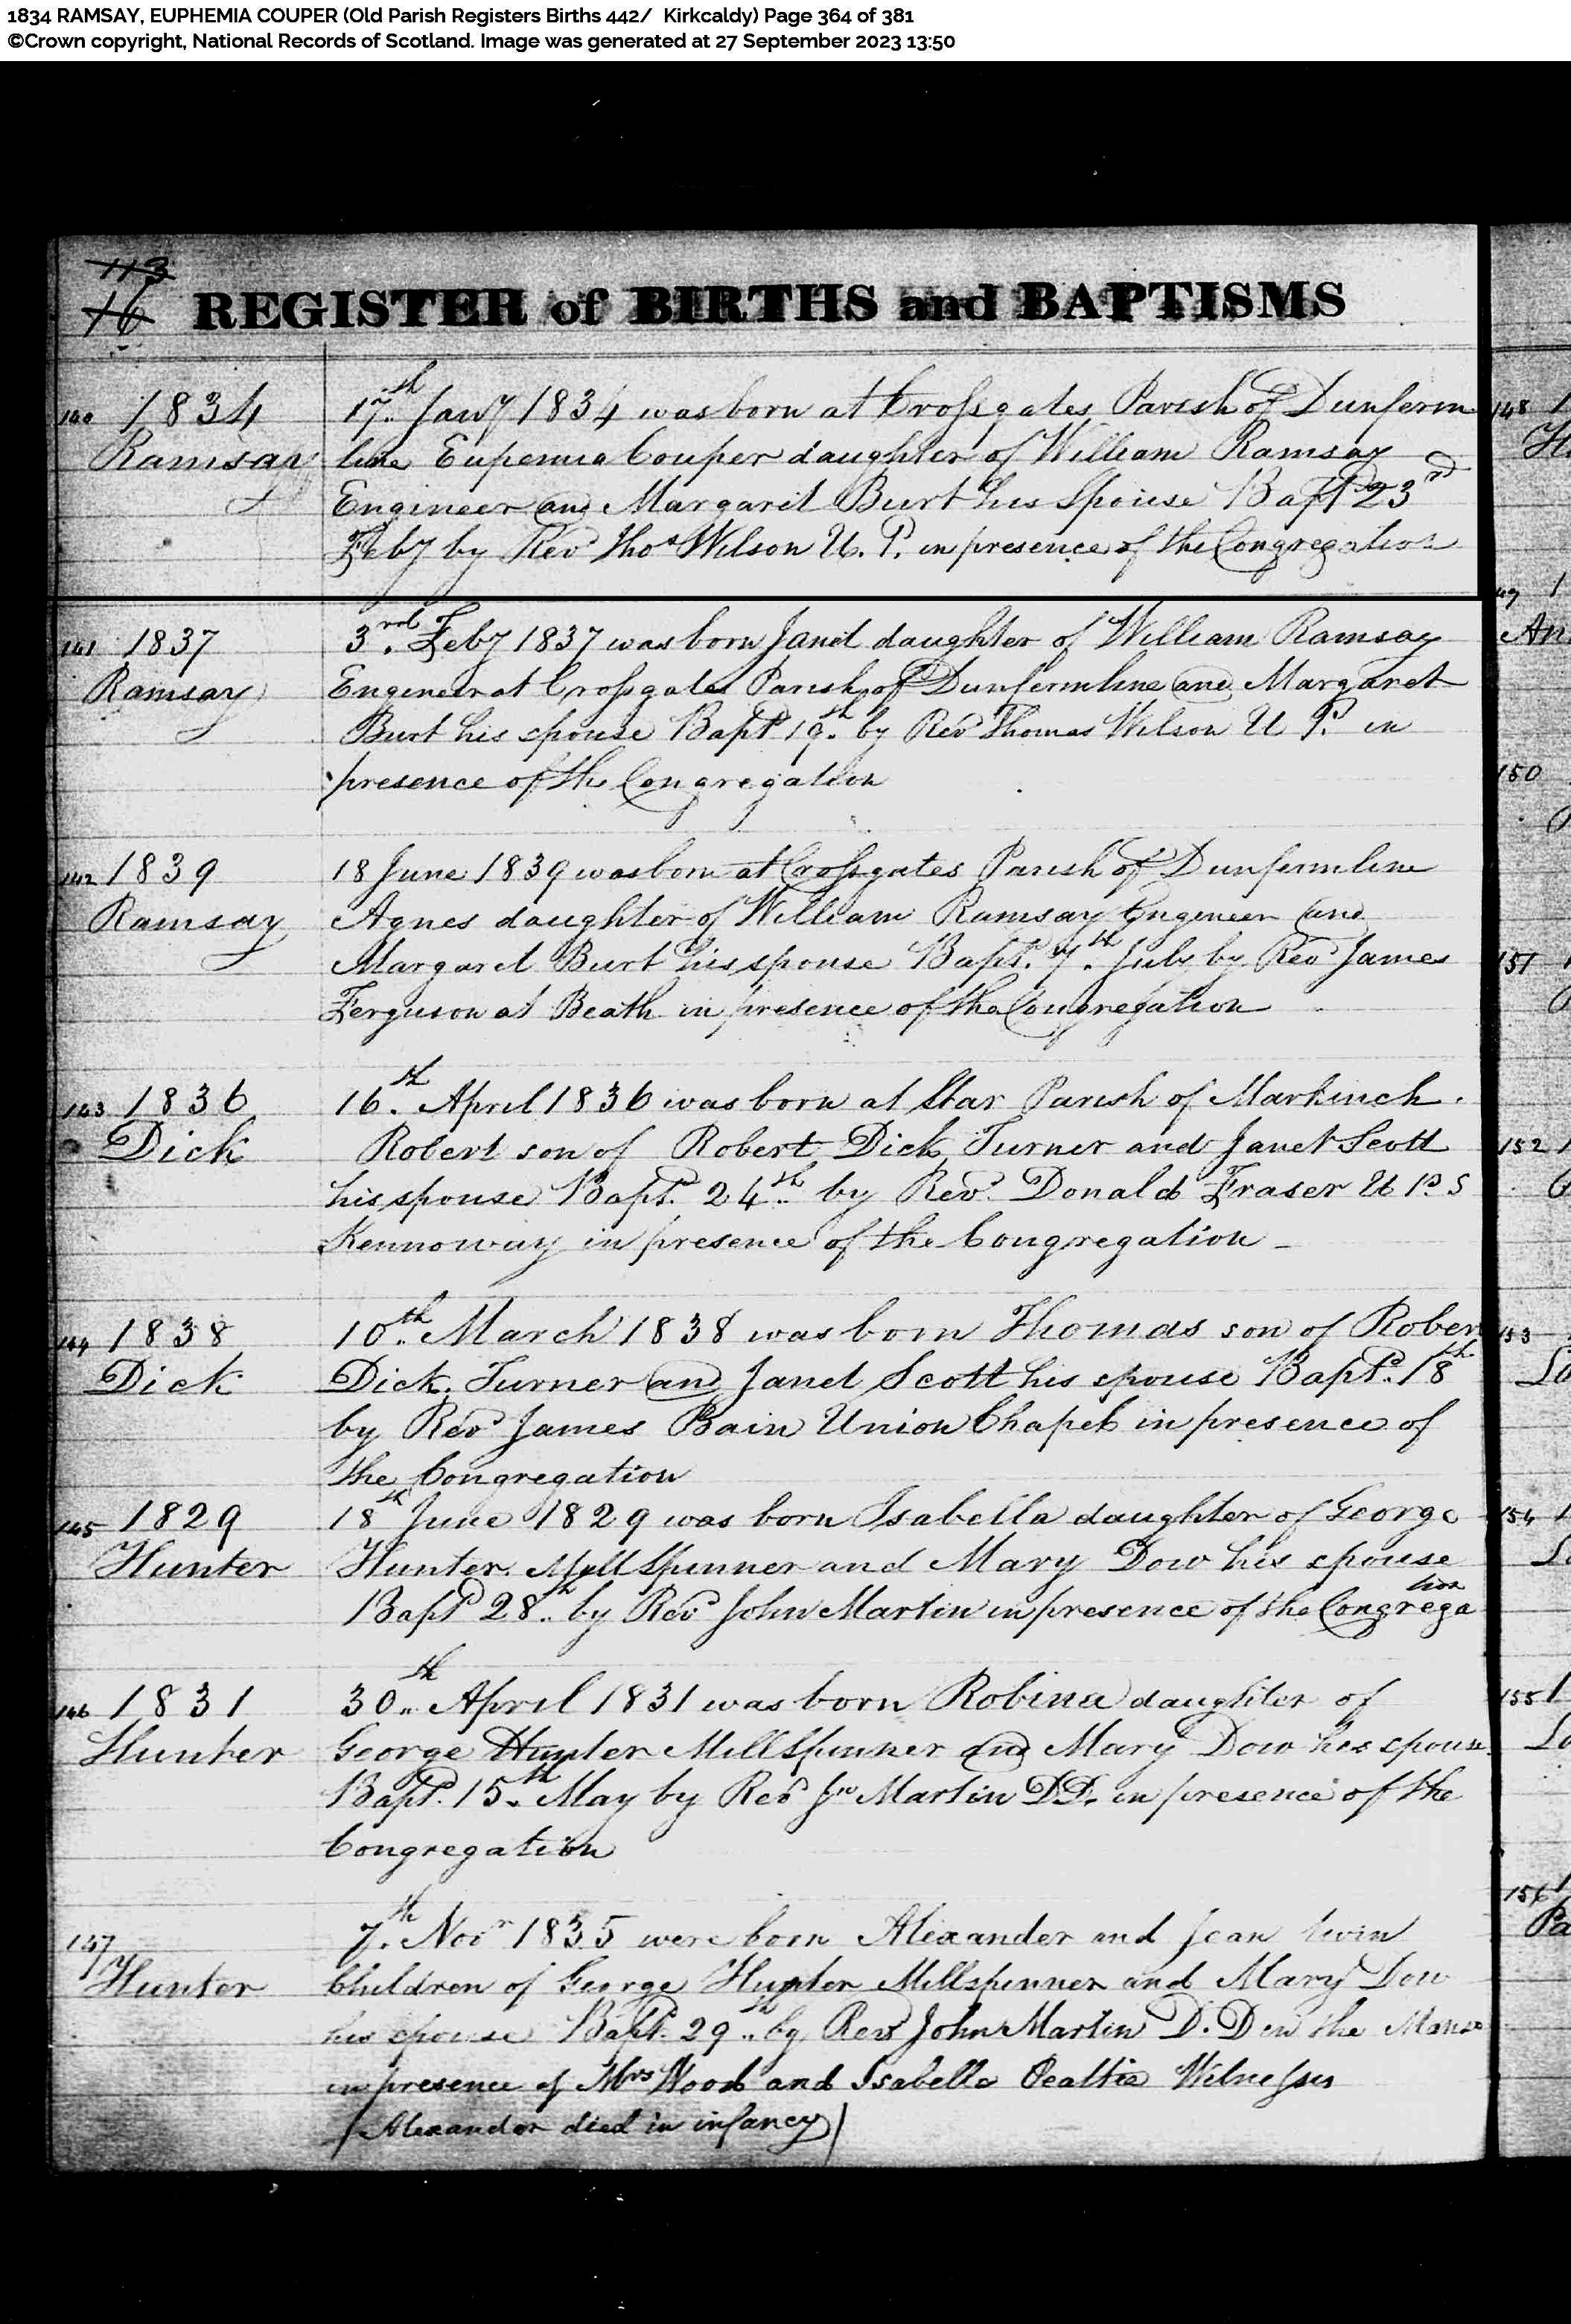 1834 RAMSAY, EUPHEMIA COUPER (Old Parish Registers Births 442/ Kirkcaldy) Page 364 of 381
©Crown copyright, National Records of Scotland. Image was generated at 27 September 2023 13:50
113
16
REGISTER of BIRTHS and BAPTISMS
140 1834 17th Jany 1834 was born at Crossgates Parish of Dunferm
Ramsay line Eupemia Couper daughter of William Ramsay
Engineer and Margaret Burt his Spouse Bapt 23rd
Feby by Revd Thos Wilson U. P. in presence of the Congregation
141 1837 3rd Feby 1837 was born Janet daughter of William Ramsay
Ramsay Engineer at Crossgates Parish of Dunfermline and Margaret
Burt his spouse Bapd 19th by Revd Thomas Wilson U P. in
presence of the Congregation
142 1839 18 June 1839 was born at Crossgates Parish of Dunfermline
Ramsay Agnes daughter of William Ramsay Engineer and
Margaret Burt his spouse Bapt. 7th July by Revd James
Ferguson at Beath in presence of the Congregation
143 1836 16th April 1836 was born at Star Parish of Markinch.
Dick Robert son of Robert Dick, Turner and Janet Scott
his spouse Bapt. 24th by Revd. Donald Fraser
Kennoway in presence of the Congregation
144 1838 10th March 1838 was born Thomas son of Rober
Dick Dick. Turner and Janet Scott his spouse Bapt. 18th
by Revd James Bain Union Chapel in presence of
the Congregation
145 1829 18th June 1829 was born Isabella daughter of George
Hunter Hunter. Mill Spinner and Mary Dow his spouse
Bapd 28th by Revd John Martin in presence of the Congrega
tion
146 1831 30th April 1831 was born Robina daughter of
Hunter George Hunter Mill Spinner and Mary Dow his spouse
Bapt. 15th May by Revd Jno Martin D.D. in presence of the
Congregation
147 7th Novr 1835 were born Alexander and Jean twin
Hunter Children of George Hunter Millspinner and Mary Dow
his spouse Bapt. 29th by Revd John Martin D. D in the Manse
in presence of Mrs Wood and Isabella Beattie Witnesses
(Alexander died in infancy)
148 1
149 1
An
150
151
152 1
153
154 1
155 1
156 1
Pa